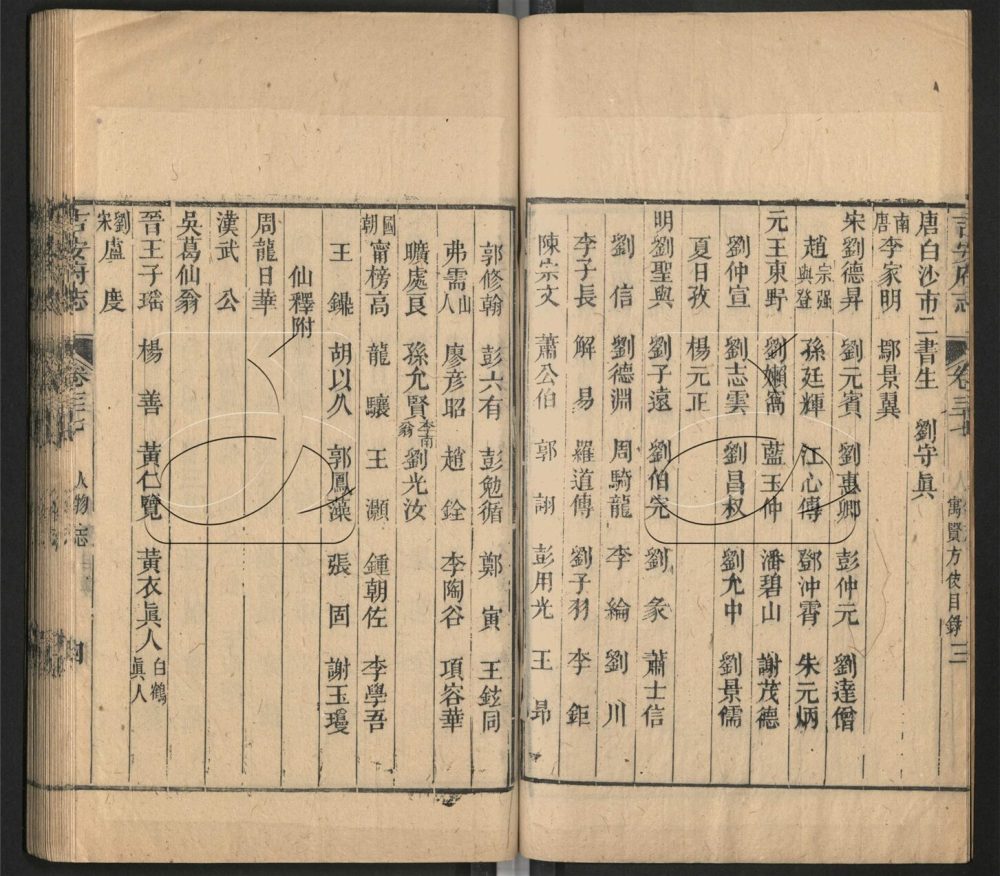 吉安府志 卷三七 人 寓賢方伎目錄 三
唐白沙市二書生 劉守眞
南唐李家明 鄢景翼
宋劉德昇 劉元賓 劉惠卿 彭仲元 劉達僧
趙宗強與登 孫廷輝 江心傳 鄧沖霄 朱元炳
元王東野 劉嬾窩 藍玉仲 潘碧山 謝茂德
劉仲宣 劉志雲 劉昌叔 劉允中 劉景儒
夏日孜 楊元正
明劉聖與 劉子遠 劉伯完 劉彖 蕭士信
劉信 劉德淵 周騎龍 李綸 劉川
李子長 解易 羅道傳 劉子羽 李鉅
陳宗文 蕭公伯 郭詡 彭用光 王昂
郭修翰 彭六有 彭勉循 鄭寅 王鉉同
弗需山人 廖彥昭 趙銓 李陶谷 項容華
曠處良 孫允賢 李南翁 劉光汝
國朝甯榜高 龍驤 王灝 鍾朝佐 李學吾
王鑣 胡以久 郭鳳藻 張固 謝玉瓊
仙釋附
周龍日華
漢武公
吳葛仙翁
晉王子瑤 楊善 黃仁覽 黃衣眞人 白鶴眞人
劉宋盧度
吉安府志 卷三七 人物志 四